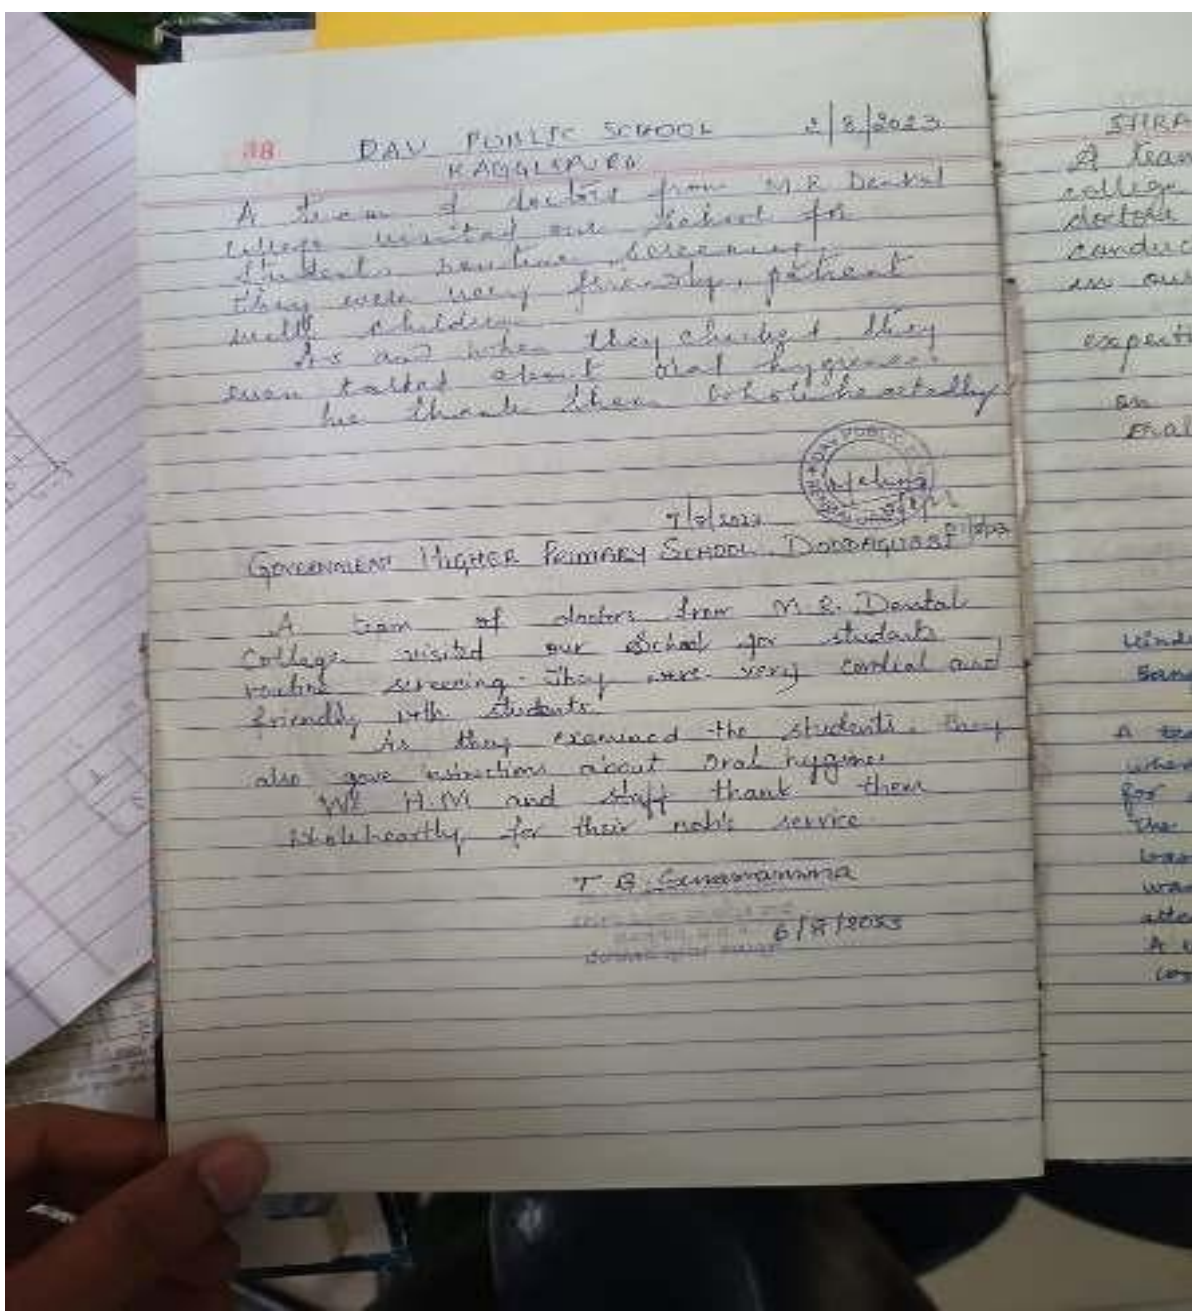 38 DAV PUBLIC SCHOOL 2/8/2023
KAGGLIPURA
A team of doctors from M.R. Dental
College visited our School for
Students routine screening.
they were very friendly, patient
with children
As and when they checked they
even talked about oral hygiene.
We thank them wholeheartedly.
DAV PUBLIC
7/8/2023
GOVERNMENT HIGHER PRIMARY SCHOOL, DODDAGUBBI
A team of doctors from M.R. Dental
College visited our School for students
routine screening. They were very cordial and
friendly with students.
As they examined the students. they
also gave instructions about oral hygiene
We H.M and staff thank them
wholeheartly for their noble service.
T B
SHRA
A team
college
doctors
conduc
in our
expecti
on
oral
Winds
Bang
A tea
when
for
The
was
atte
A